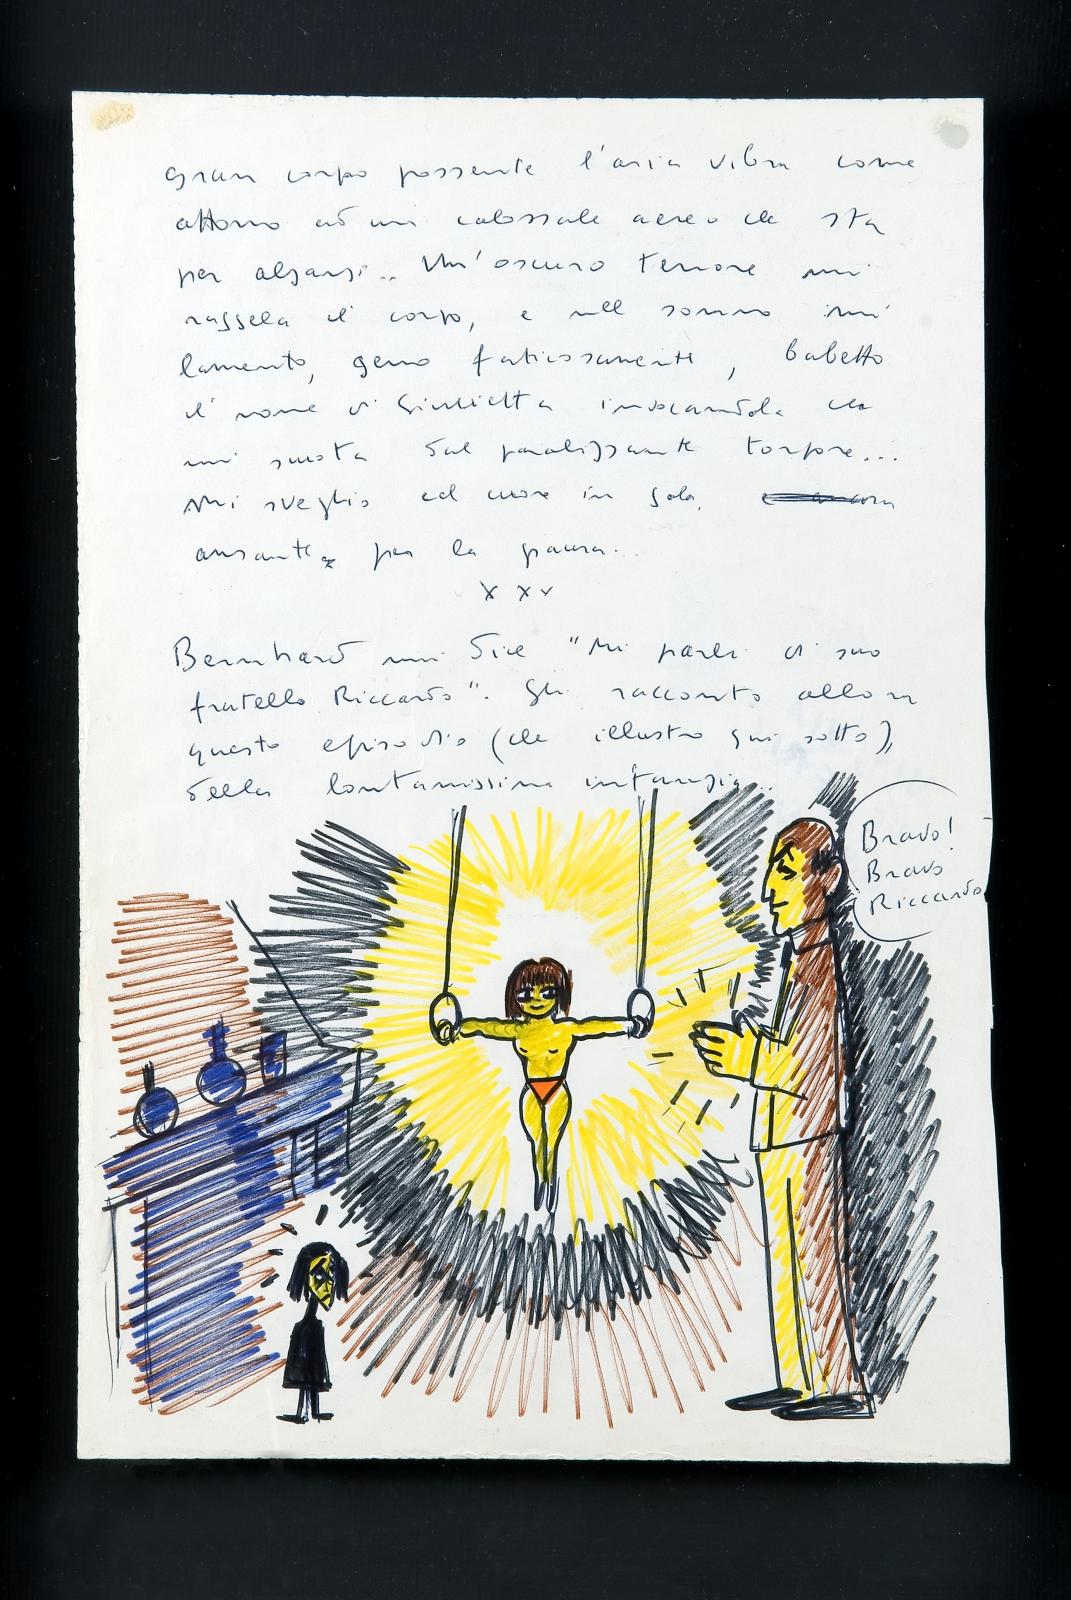 gran corpo possente l'aria vibra come
attorno ad un colossale aereo che sta
per alzarsi.. Un'oscuro terrore mi
raggela il corpo, e nel sonno mi
lamento, gemo faticosamente, balbetto
il nome di Giulietta invocandola che
mi scuota dal paralizzante torpore...
Mi sveglio col cuore in gola,
ansante per la paura...
x x x
Bernhard mi dice "Mi parli di suo
fratello Riccardo". Gli racconto allora
questo episodio (che illustro qui sotto),
della lontanissima infanzia..
Bravo!
Bravo
Riccardo